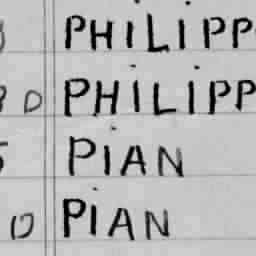 PHILIPP
D PHILIPP
PIAN
10 PIAN